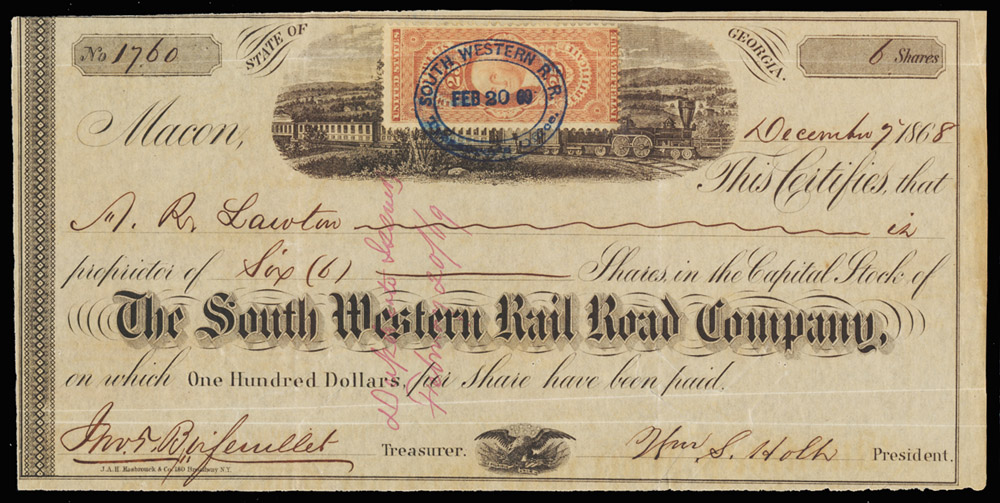 No 1760
STATE OF
GEORGIA.
6 Shares
UNITED STATES
SOUTH WESTERN R.R.
FEB 20 69
Macon,
December 7 1868
This Certifies, that
A. R. Lawton is
proprietor of Six (6) Shares, in the Capital Stock of
The South Western Rail Road Company,
on which One Hundred Dollars, per share have been paid.
Duplicate Issued
Feby 20/69
Jno. T. Boifeuillet Treasurer.
Wm S. Holt President.
J.A.H. Hasbrouck & Co. 180 Broadway N.Y.